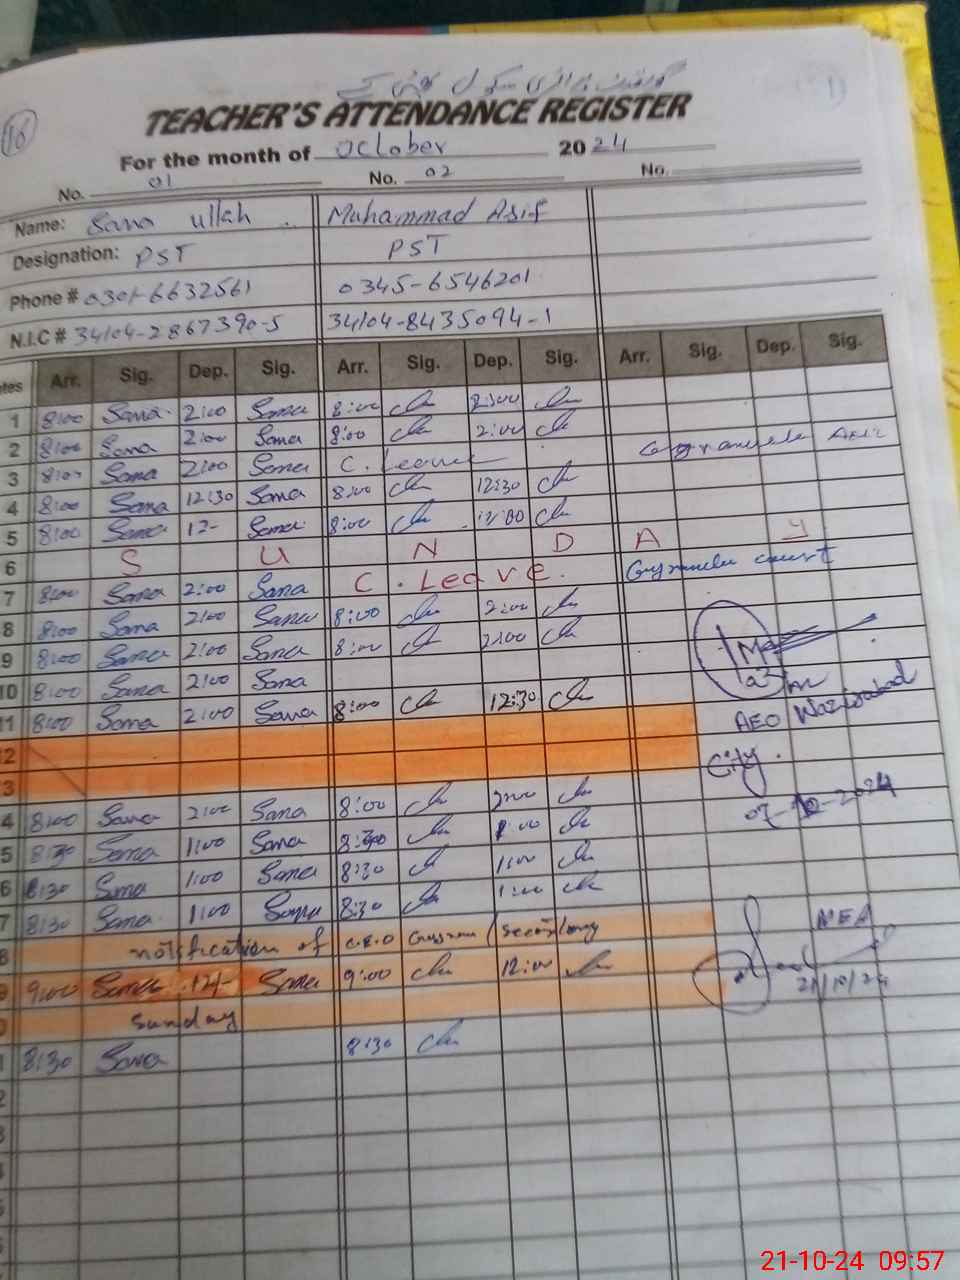 16
TEACHER'S ATTENDANCE REGISTER
For the month of October 2024
No. 01 No. 02 No.
Name: Sana ullah Muhammad Asif
Designation: PST PST
Phone # 0301-6632561 0345-6546201
N.I.C # 34104-2867390-5 34104-8435094-1
Arr. Sig. Dep. Sig. Arr. Sig. Dep. Sig. Arr. Sig. Dep. Sig.
1 8:00 Sana 2:00 Sana 8:00 2:00
2 8:00 Sana 2:00 Sana 8:00 2:00
3 8:00 Sana 2:00 Sana C. Leave
4 8:00 Sana 12:30 Sana 8:00 12:30
5 8:00 Sana 12- Sana 8:00
6 S U N D A Y
7 8:00 Sana 2:00 Sana C. Leave.
8 8:00 Sana 2:00 Sana 8:00 2:00
9 8:00 Sana 2:00 Sana 8:00 2:00
10 8:00 Sana 2:00 Sana
11 8:00 Sana 2:00 Sana 8:00 12:30
AEO Wazirabad
2
City.
3
07-10-2024
4 8:00 Sana 2:00 Sana 8:00 2:00
5 8:30 Sana 1:00 Sana 8:30 1:00
6 8:30 Sana 1:00 Sana 8:30 1:00
7 8:30 Sana 1:00 Sana 8:30 1:00
MEA
8 notification of C.E.O
9 9:00 Sana 12/- Sana 9:00 12:00
21/10/24
0 Sunday
1 8:30 Sana 8:30
2
3
21-10-24 09:57